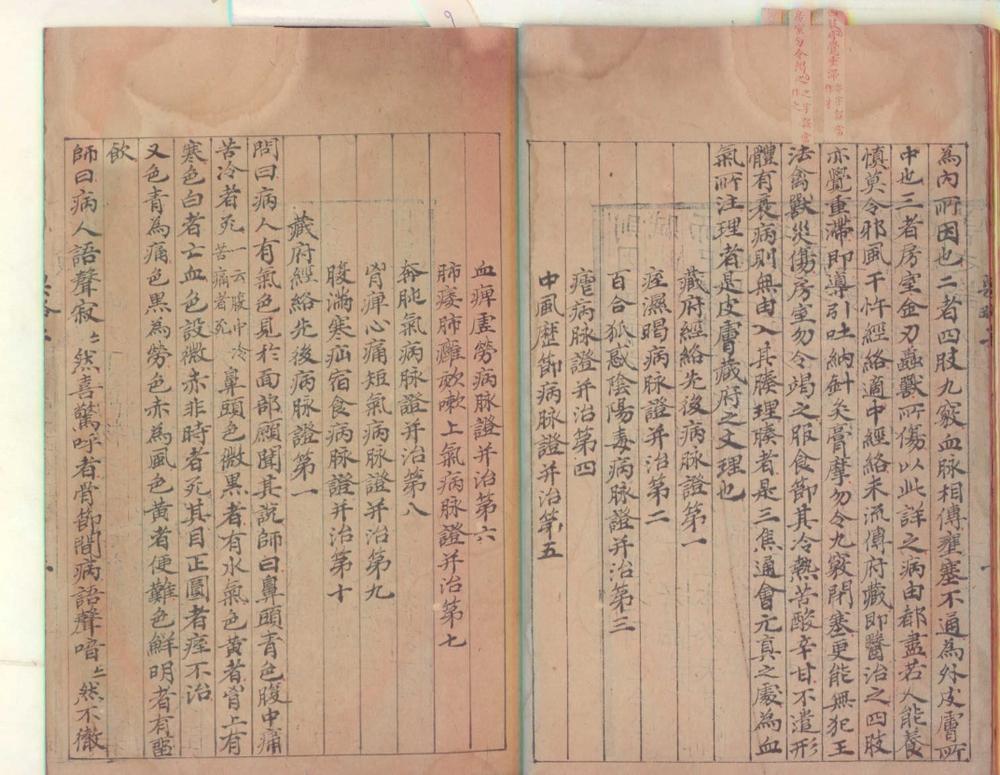 為內所因也二者四肢九竅血脉相傳壅塞不通為外皮膚所
中也三者房室金刃蟲獸所傷以此詳之病由都盡若人能養
慎莫令邪風干忤經絡適中經絡未流傳府藏即醫治之四肢
亦覺重滯即導引吐納針灸膏摩勿令九竅閉塞更能無犯王
法禽獸災傷房室勿令竭之服食節其冷熱苦酸辛甘不遣形
體有衰病則無由入其腠理腠者是三焦通會元真之處為血
氣所注理者是皮膚藏府之文理也
藏府經絡先後病脉證第一
痓濕暍病脉證并治第二
百合狐惑陰陽毒病脉證并治第三
瘧病脉證并治第四
中風歷節病脉證并治第五
血痺虛勞病脉證并治第六
肺痿肺雍欬嗽上氣病脉證并治第七
奔㹠氣病脉證并治第八
胷痺心痛短氣病脉證并治第九
腹滿寒疝宿食病脉證并治第十
藏府經絡先後病脉證第一
問曰病人有氣色見於面部願聞其說師曰鼻頭青色腹中痛
苦冷者死一云腹中冷苦痛者死鼻頭色微黑者有水氣色黃者胷上有
寒色白者亡血色設微赤非時者死其目正圓者痓不治
又色青為痛色黑為勞色赤為風色黃者便難色鮮明者有留
飲
師曰病人語聲寂〻然喜驚呼者骨節間病語聲喑〻然不徹
9